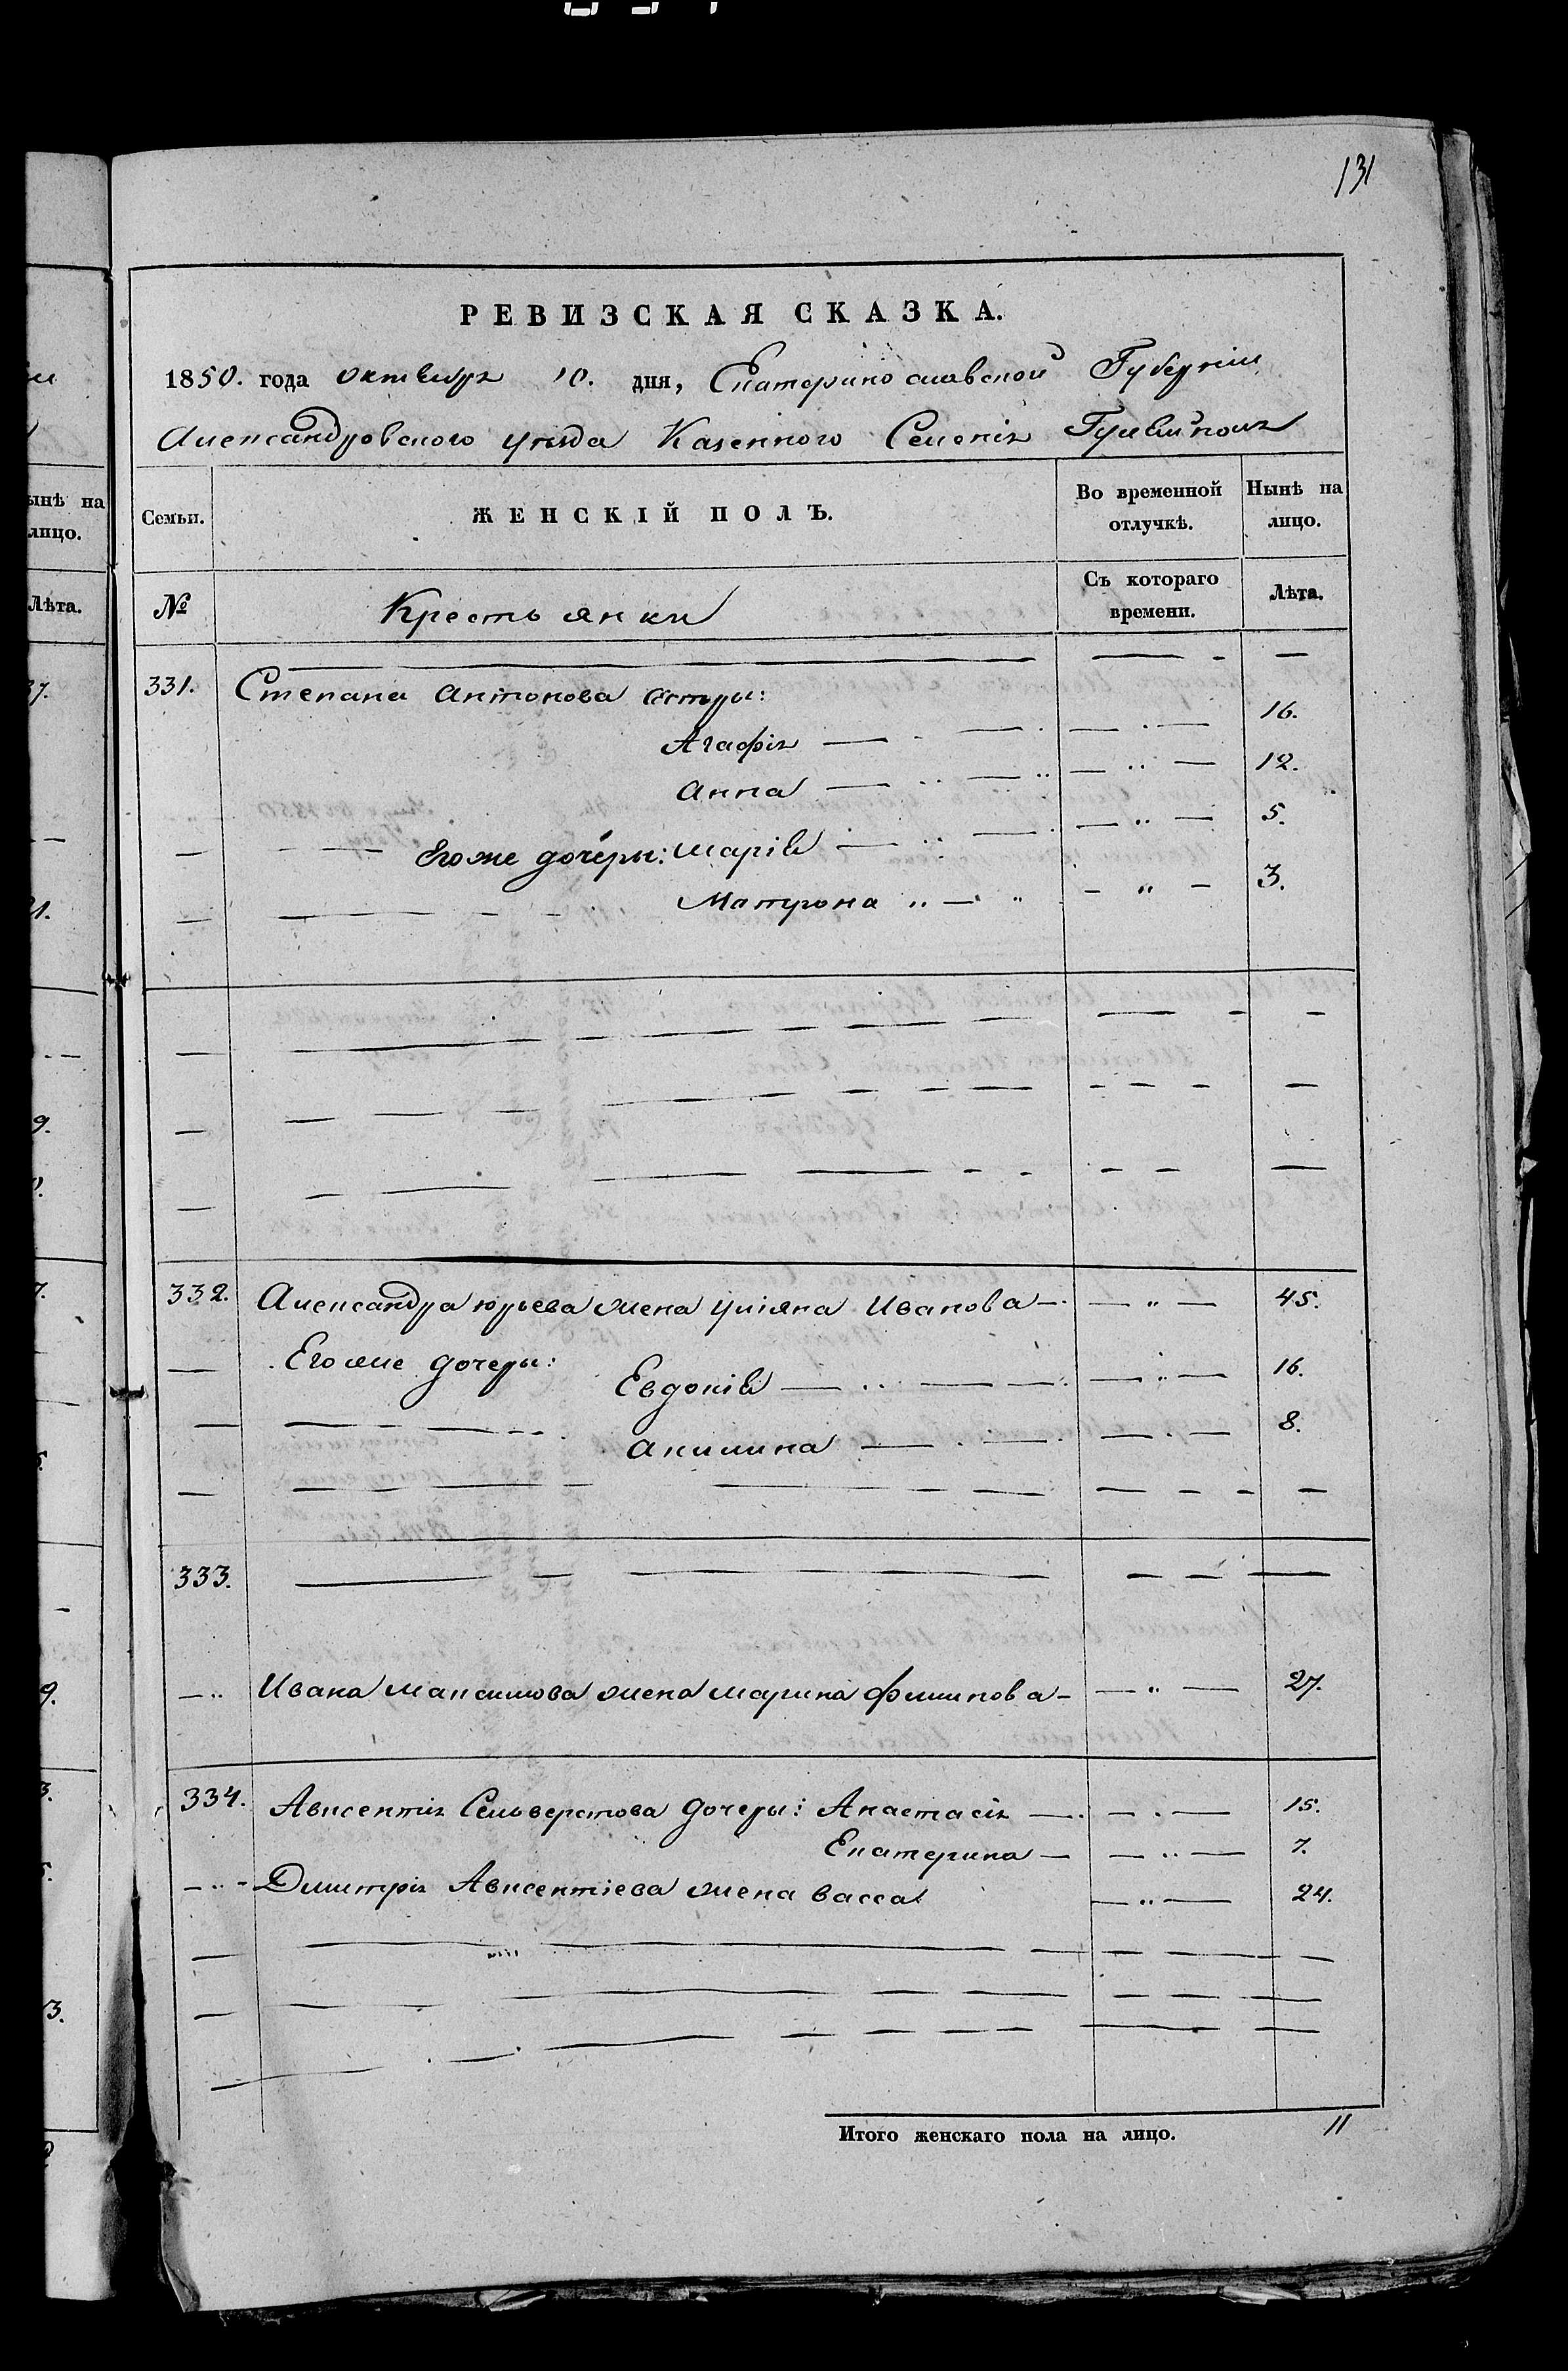 131
РЕВИЗСКАЯ СКАЗКА.
1850. года октября 10. дня, Екатеринославской Губерніи
Александровского уезда Казенного Селенія Гуляйполя
Семьи. ЖЕНСКІЙ ПОЛЪ. Во временной отлучкѣ. Нынѣ на лицо.
№ Крестьянки Съ котораго времени. Лѣта.
331. Степана Антонова сестры:
Агафія 16.
Анна 12.
Егоже дочери: Марія 5.
Матрона 3.
332. Александра Юрьева жена Уліяна Иванова 45.
Егоже дочери:
Евдокія 16.
Акилина 8.
333.
Ивана Максимова жена Марина Филипова 27.
334. Авксентія Сельверстова дочери: Анастасія 15.
Екатерина 7.
Дмитрія Авксентіева жена Васса 24.
Итого женскаго пола на лицо. 11
ынѣ на
лицо.
Лѣта.